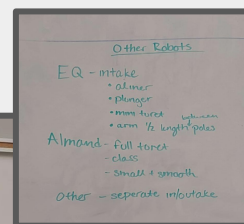 Other Robots
EQ - intake
• aliner
• plunger
• mini turet
• arm 1/2 length poles
Almand - full turet
- class
- small + smooth
Other - seperate in/outake